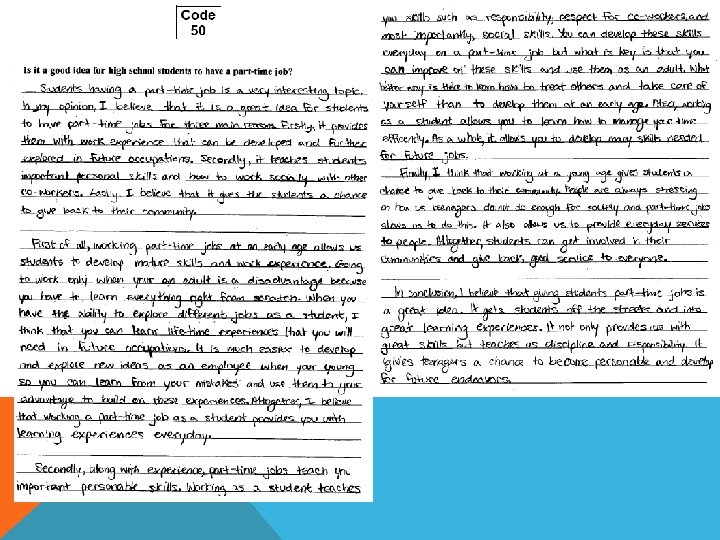 Code
50
Is it a good idea for high school students to have a part-time job?
Students having a part-time job is a very interesting topic.
In my opinion, I believe that it is a great idea for students
to have part-time jobs for three main reasons. Firstly, it provides
them with work experience that can be developed and further
explored in future occupations. Secondly, it teaches students
important personal skills and how to work socially with other
co-workers. Lastly, I believe that it gives the students a chance
to give back to their community.
First of all, working part-time jobs at an early age allows us
students to develop mature skills and work experience. Going
to work only when your an adult is a disadvantage because
you have to learn everything right from scratch. When you
have the ability to explore different jobs as a student, I
think that you can learn life-time experiences that you will
need in future occupations. It is much easier to develop
and explore new ideas as an employee when your young
so you can learn from your mistakes and use them to your
advantage to build on those experiences. Altogether, I believe
that working a part-time job as a student provides you with
learning experiences everyday.
Secondly, along with experience, part-time jobs teach you
important personable skills. Working as a student teaches
you skills such as responsibility, respect for co-workers, and
most importantly, social skills. You can develop these skills
everyday on a part-time job but what is key is that you
can improve on these skills and use them as an adult. What
better way is there to learn how to treat others and take care of
yourself than to develop them at an early age. Also, working
as a student allows you to learn how to manage your time
efficiently. As a whole, it allows you to develop many skills needed
for future jobs.
Finally, I think that working at a young age gives students a
chance to give back to their community. People are always stressing
on how us teenagers do not do enough for society and part-time jobs
allows us to do this. It also allows us to provide everyday services
to people. Altogether, students can get involved in their
communities and give back good service to everyone.
In conclusion, I believe that giving students part-time jobs is
a great idea. It gets students off the streets and into
great learning experiences. It not only provides us with
great skills but teaches us discipline and responsibility. It
gives teenagers a chance to become personable and develop
for future endeavors.